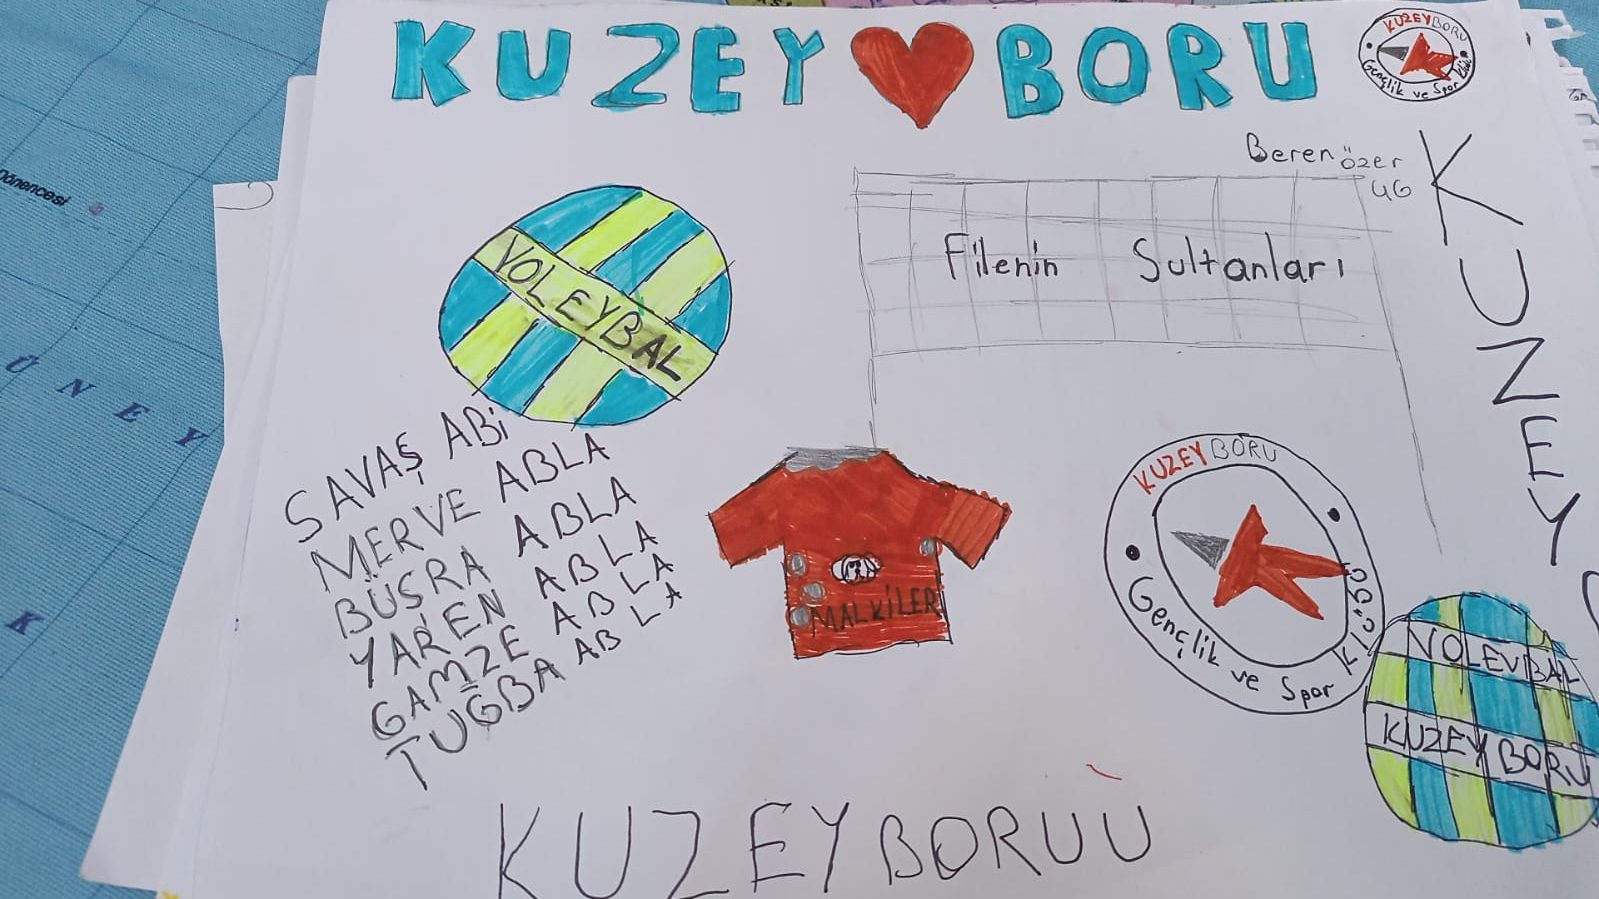 KUZEY BORU
KUZEYBORU
Gençlik ve Spor
Beren özer
4G
KUZEY
Filenin Sultanları
VOLEYBAL
SAVAŞ ABİ
MERVE ABLA
BÜŞRA ABLA
YAREN ABLA
GAMZE ABLA
TUĞBA ABLA
MALKİLER
KUZEYBORU
Gençlik ve Spor Klübü
VOLEYBAL
KUZEY BORU
KUZEYBORUU
Dönencesi
ÜNEY
K